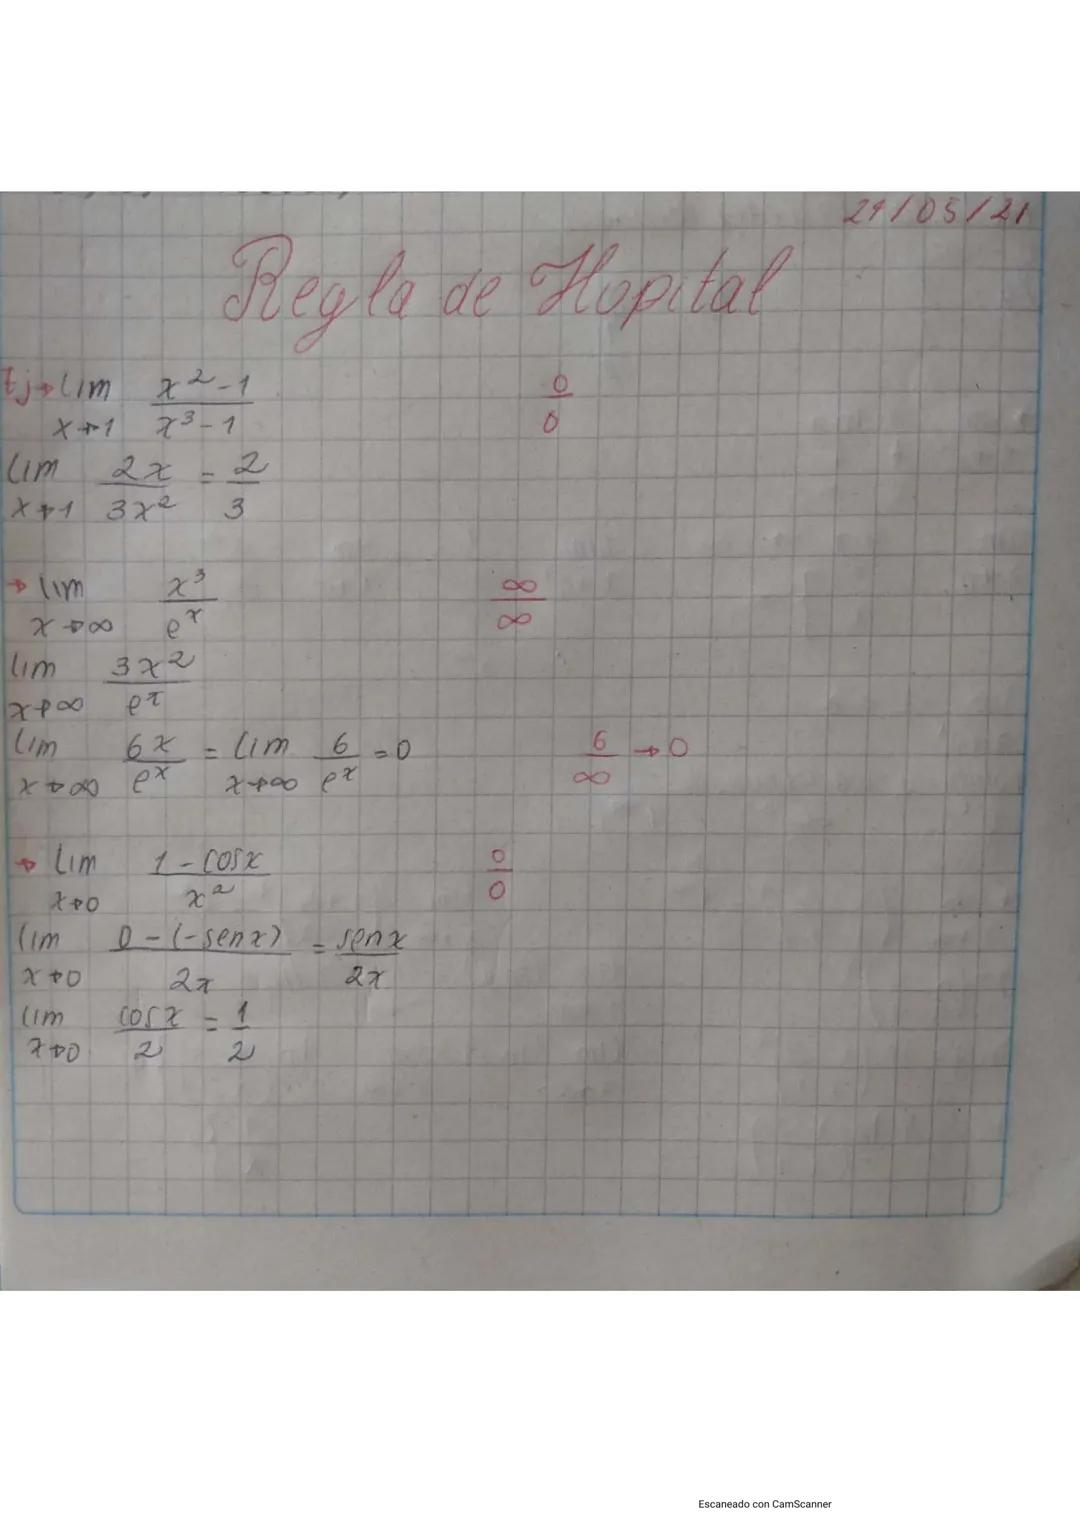 21/05/21
Regla de Hopital
Ej→ lim x→1 (x²-1)/(x³-1) 0/0
lim x→1 2x/3x² = 2/3
→ lim x→∞ x³/eˣ ∞/∞
lim x→∞ 3x²/eˣ
lim x→∞ 6x/eˣ = lim x→∞ 6/eˣ = 0 6/∞ → 0
→ lim x→0 (1-cosx)/x² 0/0
lim x→0 (0-(-senx))/2x = senx/2x
lim x→0 cosx/2 = 1/2
Escaneado con CamScanner